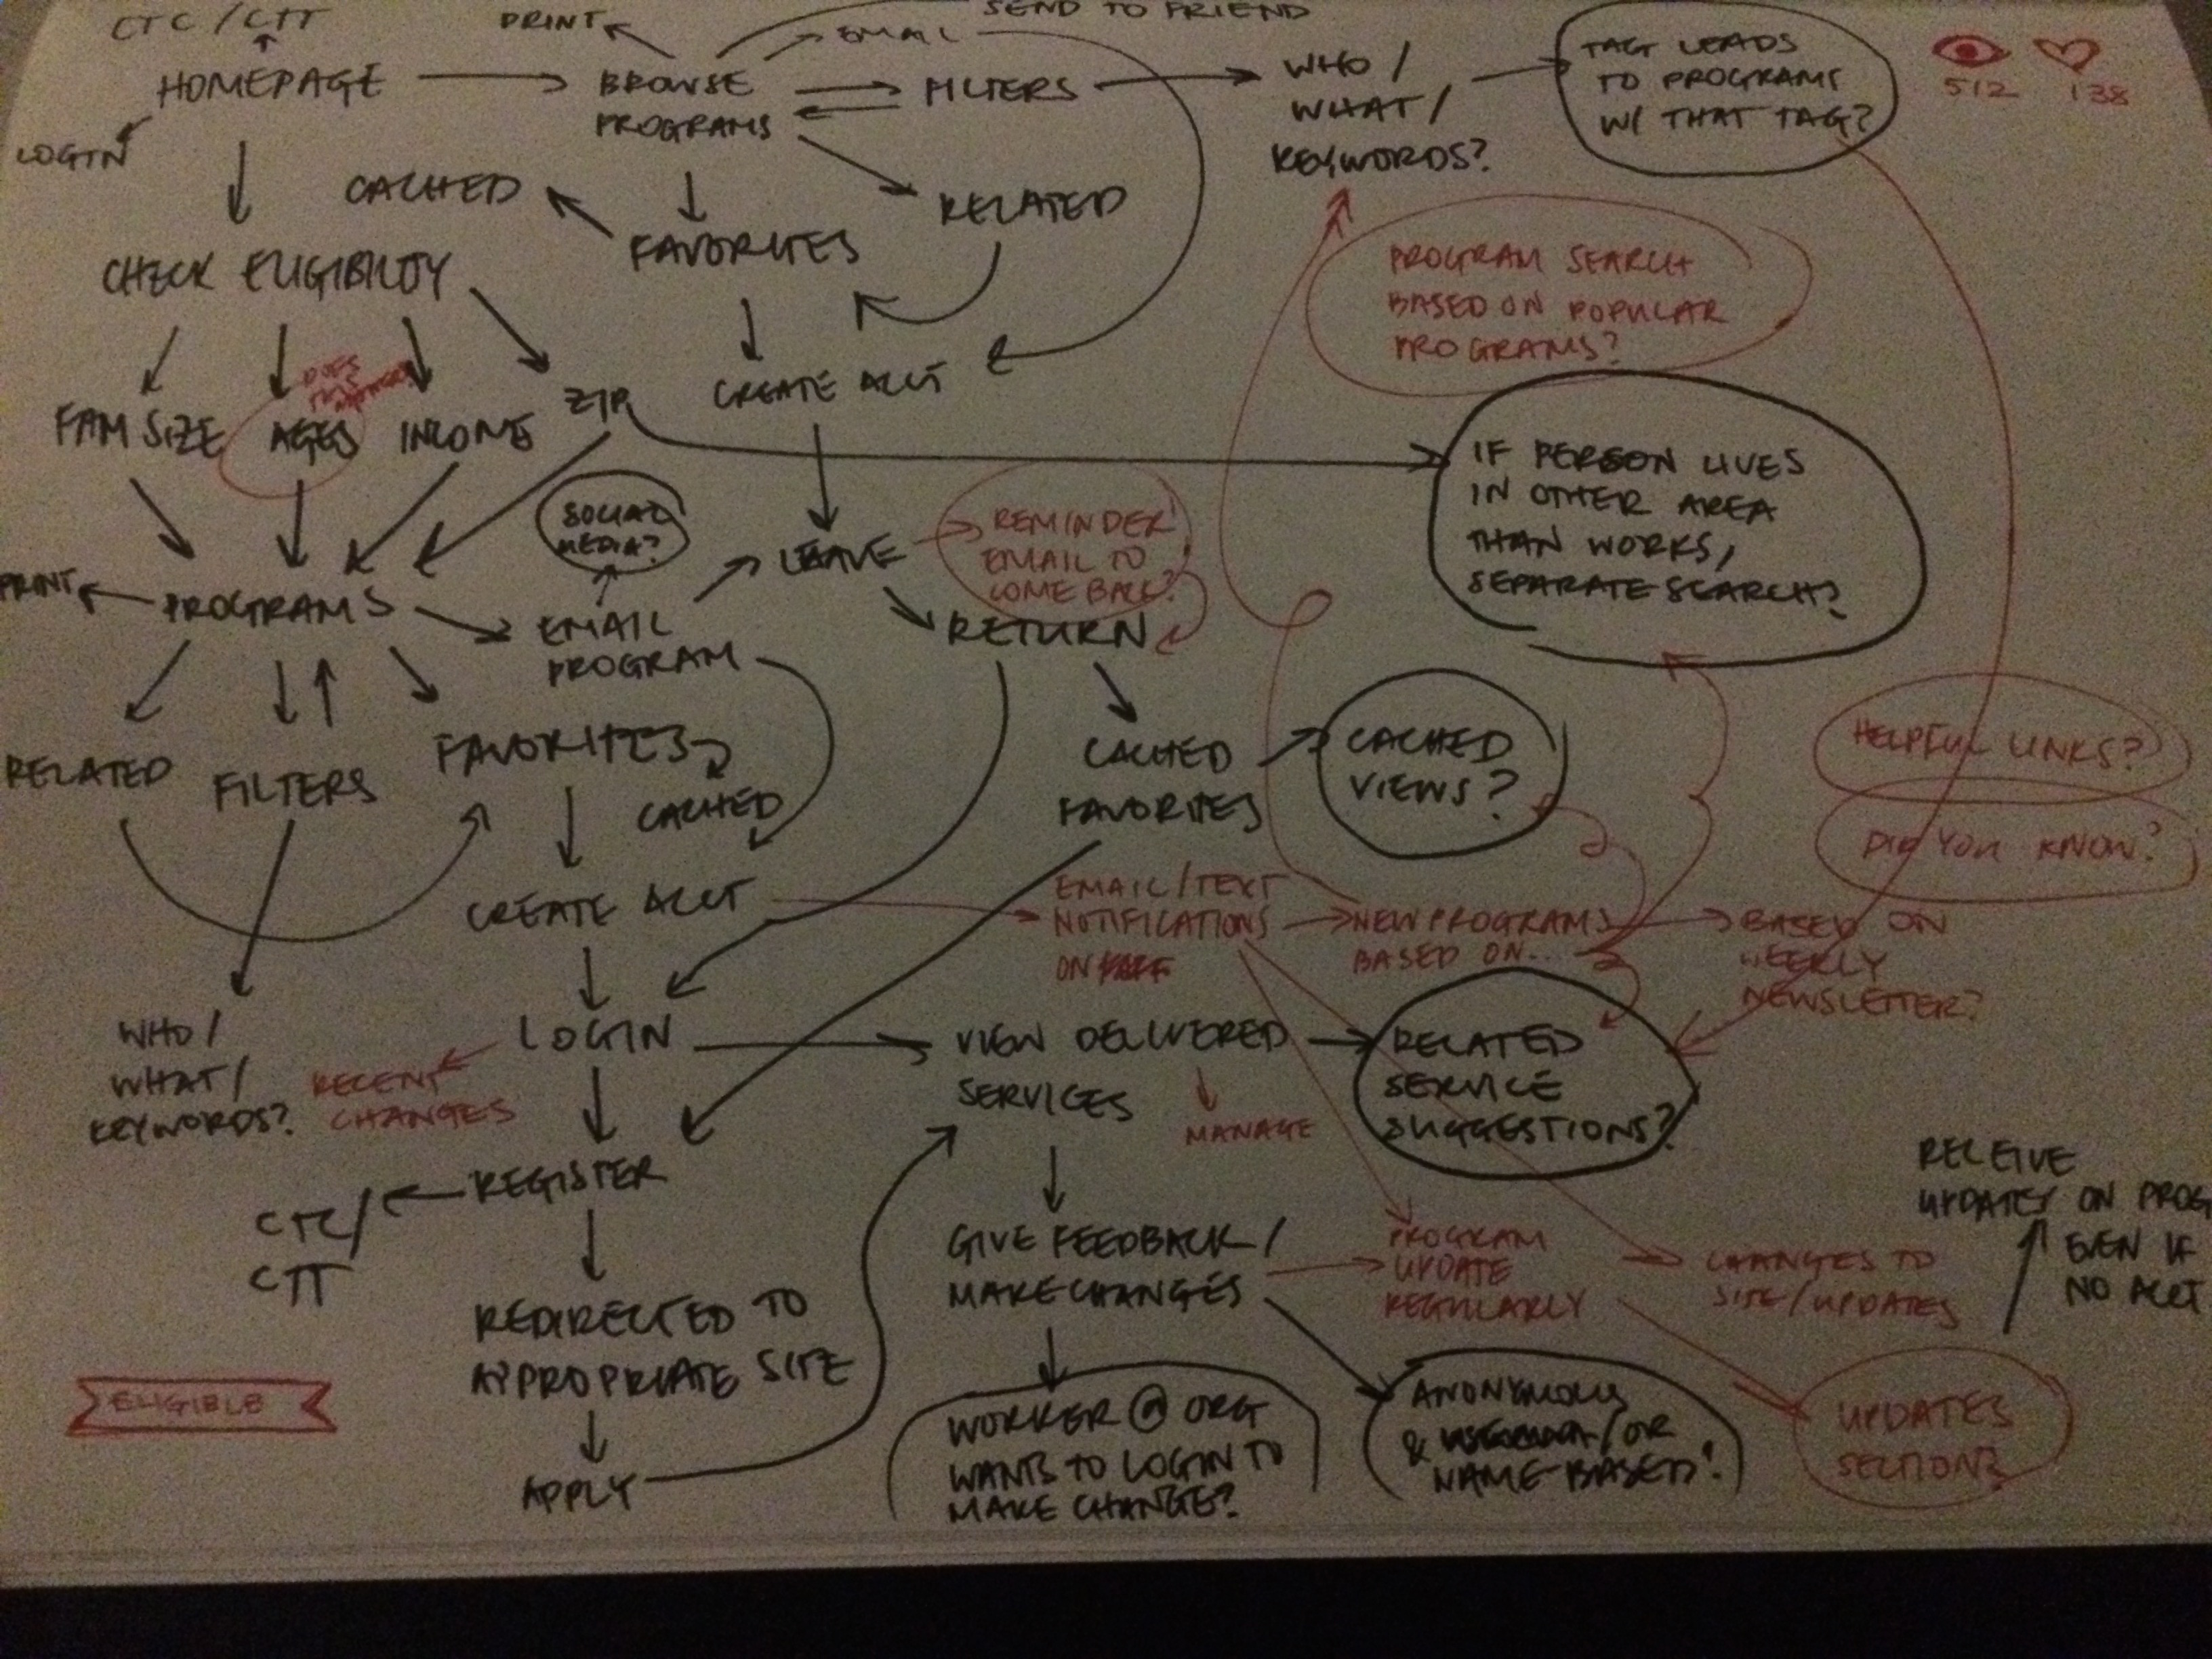 CTC / CTT
HOMEPAGE
LOGIN
PRINT
EMAIL
SEND TO FRIEND
BROWSE
PROGRAMS
FILTERS
WHO /
WHAT /
KEYWORDS?
TAG LEADS
TO PROGRAMS
W/ THAT TAG?
512
138
CACHED
FAVORITES
RELATED
CHECK ELIGIBILITY
PROGRAM SEARCH
BASED ON POPULAR
PROGRAMS?
DOES
THIS
MATTER?
FAM SIZE
AGES
INCOME
ZIP
CREATE ACCT
IF PERSON LIVES
IN OTHER AREA
THAN WORKS,
SEPARATE SEARCH?
SOCIAL
MEDIA?
LEAVE
REMINDER
EMAIL TO
COME BACK?
PRINT
PROGRAMS
EMAIL
PROGRAM
RETURN
RELATED
FILTERS
FAVORITES
CACHED
CACHED
FAVORITES
CACHED
VIEWS?
HELPFUL LINKS?
DID YOU KNOW?
CREATE ACCT
EMAIL/TEXT
NOTIFICATIONS
ON
NEW PROGRAMS
BASED ON...
BASED ON
WEEKLY
NEWSLETTER?
WHO /
WHAT /
KEYWORDS?
RECENT
CHANGES
LOGIN
VIEW DELIVERED
SERVICES
MANAGE
RELATED
SERVICE
SUGGESTIONS?
REGISTER
CTC/
CTT
GIVE FEEDBACK /
MAKE CHANGES
PROGRAM
UPDATE
REGULARLY
CHANGES TO
SITE/UPDATES
RECEIVE
UPDATES ON PROG
EVEN IF
NO ACCT
REDIRECTED TO
APPROPRIATE SITE
ELIGIBLE
APPLY
WORKER @ ORG
WANTS TO LOGIN TO
MAKE CHANGE?
ANONYMOUS
& / OR
NAME-BASED?
UPDATES
SECTION?